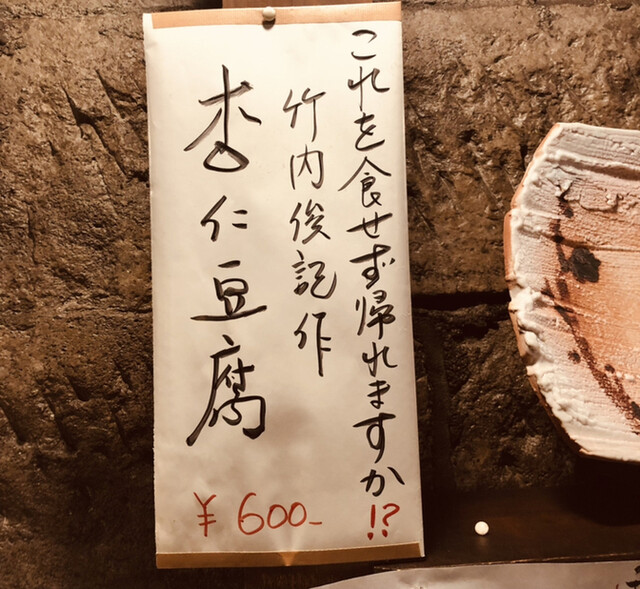 これを食せず帰れますか!?
竹内俊記作
杏仁豆腐
¥600-